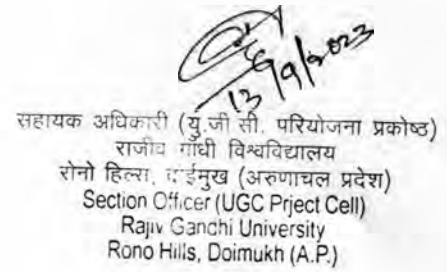 13/9/2023
सहायक अधिकारी (यु.जी सी. परियोजना प्रकोष्ठ)
राजीव गांधी विश्वविद्यालय
रोनो हिल्स, दाईमुख (अरुणाचल प्रदेश)
Section Officer (UGC Prject Cell)
Rajiv Gandhi University
Rono Hills, Doimukh (A.P.)